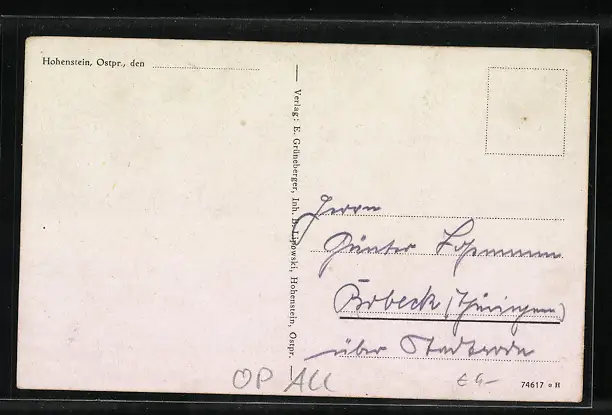 Hohenstein, Ostpr., den
Verlag: E. Grüneberger, Inh. B. Lipowski, Hohenstein, Ostpr.
Herrn
Günter
Bobeck (Thüringen)
über Stadtroda
OP ALL
€ 4,-
74617 H